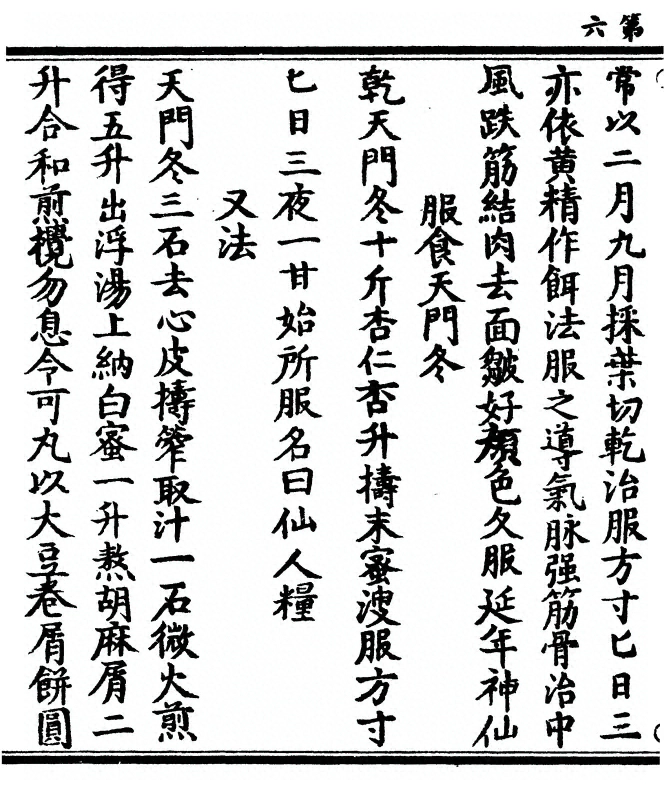 第六
常以二月九月採葉切乾治服方寸匕日三
亦依黄精作餌法服之導氣脉强筋骨治中
風跌筋結肉去面皺好顔色久服延年神仙
服食天門冬
乾天門冬十斤杏仁杏升擣末蜜溲服方寸
匕日三夜一甘始所服名曰仙人糧
又法
天門冬三石去心皮擣笮取汁一石微火煎
得五升出浮湯上納白蜜一升熬胡麻屑二
升合和煎攪勿息令可丸以大豆卷屑餅圓